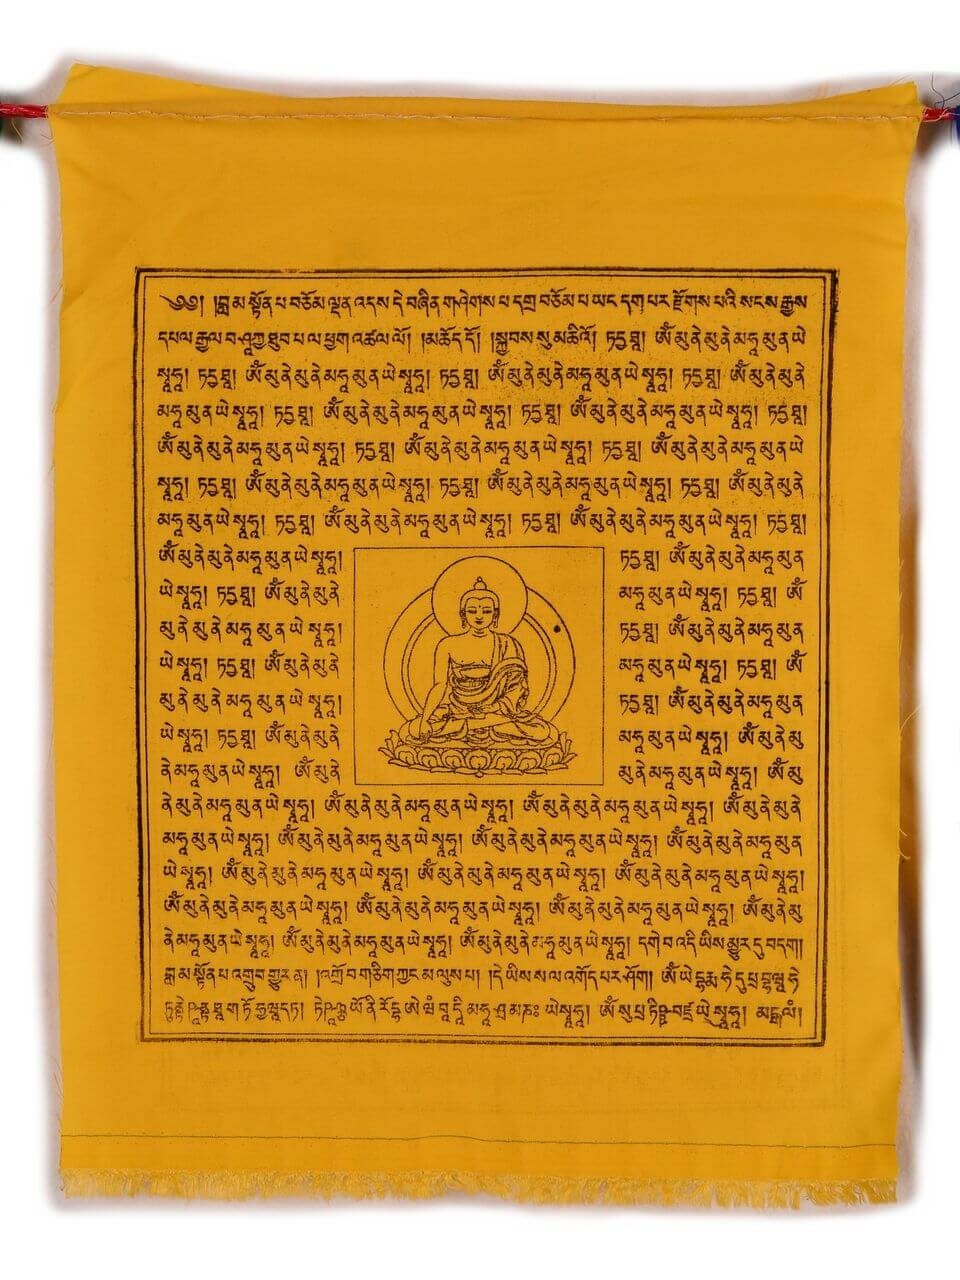 ༄༅། །བླ་མ་སྟོན་པ་བཅོམ་ལྡན་འདས་དེ་བཞིན་གཤེགས་པ་དགྲ་བཅོམ་པ་ཡང་དག་པར་རྫོགས་པའི་སངས་རྒྱས
དཔལ་རྒྱལ་བ་ཤཱཀྱ་ཐུབ་པ་ལ་ཕྱག་འཚལ་ལོ། །མཆོད་དོ། །སྐྱབས་སུ་མཆིའོ། ཏདྱ་ཐཱ། ཨོཾ་མུ་ནེ་མུ་ནེ་མཧཱ་མུ་ན་ཡེ
སྭཱཧཱ། ཏདྱ་ཐཱ། ཨོཾ་མུ་ནེ་མུ་ནེ་མཧཱ་མུ་ན་ཡེ་སྭཱཧཱ། ཏདྱ་ཐཱ། ཨོཾ་མུ་ནེ་མུ་ནེ་མཧཱ་མུ་ན་ཡེ་སྭཱཧཱ། ཏདྱ་ཐཱ། ཨོཾ་མུ་ནེ་མུ་ནེ
མཧཱ་མུ་ན་ཡེ་སྭཱཧཱ། ཏདྱ་ཐཱ། ཨོཾ་མུ་ནེ་མུ་ནེ་མཧཱ་མུ་ན་ཡེ་སྭཱཧཱ། ཏདྱ་ཐཱ། ཨོཾ་མུ་ནེ་མུ་ནེ་མཧཱ་མུ་ན་ཡེ་སྭཱཧཱ། ཏདྱ་ཐཱ།
ཨོཾ་མུ་ནེ་མུ་ནེ་མཧཱ་མུ་ན་ཡེ་སྭཱཧཱ། ཏདྱ་ཐཱ། ཨོཾ་མུ་ནེ་མུ་ནེ་མཧཱ་མུ་ན་ཡེ་སྭཱཧཱ། ཏདྱ་ཐཱ། ཨོཾ་མུ་ནེ་མུ་ནེ་མཧཱ་མུ་ན་ཡེ
སྭཱཧཱ། ཏདྱ་ཐཱ། ཨོཾ་མུ་ནེ་མུ་ནེ་མཧཱ་མུ་ན་ཡེ་སྭཱཧཱ། ཏདྱ་ཐཱ། ཨོཾ་མུ་ནེ་མུ་ནེ་མཧཱ་མུ་ན་ཡེ་སྭཱཧཱ། ཏདྱ་ཐཱ། ཨོཾ་མུ་ནེ་མུ་ནེ
མཧཱ་མུ་ན་ཡེ་སྭཱཧཱ། ཏདྱ་ཐཱ། ཨོཾ་མུ་ནེ་མུ་ནེ་མཧཱ་མུ་ན་ཡེ་སྭཱཧཱ། ཏདྱ་ཐཱ། ཨོཾ་མུ་ནེ་མུ་ནེ་མཧཱ་མུ་ན་ཡེ་སྭཱཧཱ། ཏདྱ་ཐཱ།
ཨོཾ་མུ་ནེ་མུ་ནེ་མཧཱ་མུ་ན་ཡེ་སྭཱཧཱ། ཏདྱ་ཐཱ། ཨོཾ་མུ་ནེ་མུ་ནེ་མཧཱ་མུ་ན
ཡེ་སྭཱཧཱ། ཏདྱ་ཐཱ། ཨོཾ་མུ་ནེ་མུ་ནེ མཧཱ་མུ་ན་ཡེ་སྭཱཧཱ། ཏདྱ་ཐཱ། ཨོཾ
མུ་ནེ་མུ་ནེ་མཧཱ་མུ་ན་ཡེ་སྭཱཧཱ། ཏདྱ་ཐཱ། ཨོཾ་མུ་ནེ་མུ་ནེ་མཧཱ་མུ་ན
ཡེ་སྭཱཧཱ། ཏདྱ་ཐཱ། ཨོཾ་མུ་ནེ་མུ་ནེ མཧཱ་མུ་ན་ཡེ་སྭཱཧཱ། ཏདྱ་ཐཱ། ཨོཾ
མུ་ནེ་མུ་ནེ་མཧཱ་མུ་ན་ཡེ་སྭཱཧཱ། ཏདྱ་ཐཱ། ཨོཾ་མུ་ནེ་མུ་ནེ་མཧཱ་མུ་ན
ཡེ་སྭཱཧཱ། ཏདྱ་ཐཱ། ཨོཾ་མུ་ནེ་མུ་ནེ མཧཱ་མུ་ན་ཡེ་སྭཱཧཱ། ཨོཾ་མུ་ནེ་མུ
ནེ་མཧཱ་མུ་ན་ཡེ་སྭཱཧཱ། ཨོཾ་མུ་ནེ མུ་ནེ་མཧཱ་མུ་ན་ཡེ་སྭཱཧཱ། ཨོཾ་མུ
ནེ་མུ་ནེ་མཧཱ་མུ་ན་ཡེ་སྭཱཧཱ། ཨོཾ་མུ་ནེ་མུ་ནེ་མཧཱ་མུ་ན་ཡེ་སྭཱཧཱ། ཨོཾ་མུ་ནེ་མུ་ནེ་མཧཱ་མུ་ན་ཡེ་སྭཱཧཱ། ཨོཾ་མུ་ནེ་མུ་ནེ
མཧཱ་མུ་ན་ཡེ་སྭཱཧཱ། ཨོཾ་མུ་ནེ་མུ་ནེ་མཧཱ་མུ་ན་ཡེ་སྭཱཧཱ། ཨོཾ་མུ་ནེ་མུ་ནེ་མཧཱ་མུ་ན་ཡེ་སྭཱཧཱ། ཨོཾ་མུ་ནེ་མུ་ནེ་མཧཱ་མུ་ན
ཡེ་སྭཱཧཱ། ཨོཾ་མུ་ནེ་མུ་ནེ་མཧཱ་མུ་ན་ཡེ་སྭཱཧཱ། ཨོཾ་མུ་ནེ་མུ་ནེ་མཧཱ་མུ་ན་ཡེ་སྭཱཧཱ། ཨོཾ་མུ་ནེ་མུ་ནེ་མཧཱ་མུ་ན་ཡེ་སྭཱཧཱ།
ཨོཾ་མུ་ནེ་མུ་ནེ་མཧཱ་མུ་ན་ཡེ་སྭཱཧཱ། ཨོཾ་མུ་ནེ་མུ་ནེ་མཧཱ་མུ་ན་ཡེ་སྭཱཧཱ། ཨོཾ་མུ་ནེ་མུ་ནེ་མཧཱ་མུ་ན་ཡེ་སྭཱཧཱ། ཨོཾ་མུ་ནེ་མུ
ནེ་མཧཱ་མུ་ན་ཡེ་སྭཱཧཱ། ཨོཾ་མུ་ནེ་མུ་ནེ་མཧཱ་མུ་ན་ཡེ་སྭཱཧཱ། ཨོཾ་མུ་ནེ་མུ་ནེ་མཧཱ་མུ་ན་ཡེ་སྭཱཧཱ། དགེ་བ་འདི་ཡིས་མྱུར་དུ་བདག།
བླ་མ་སྟོན་པ་འགྲུབ་གྱུར་ན། །འགྲོ་བ་གཅིག་ཀྱང་མ་ལུས་པ། །དེ་ཡིས་ས་ལ་འགོད་པར་ཤོག། ཨོཾ་ཡེ་དྷརྨ་ཧེ་ཏུ་པྲ་བྷ་ཝཱ་ཧེ
ཏུནྟེ་ཥཱནྟ་ཐཱ་ག་ཏོ་ཧྱ་ཝ་དཏ། ཏེ་ཥཱཉྩ་ཡོ་ནི་རོ་དྷ་ཨེ་ཝཾ་བཱ་དཱི་མཧཱ་ཤྲ་མ་ཎཿ་ཡེ་སྭཱཧཱ། ཨོཾ་སུ་པྲ་ཏིཥྛ་བཛྲ་ཡེ་སྭཱཧཱ། མངྒ་ལཾ།